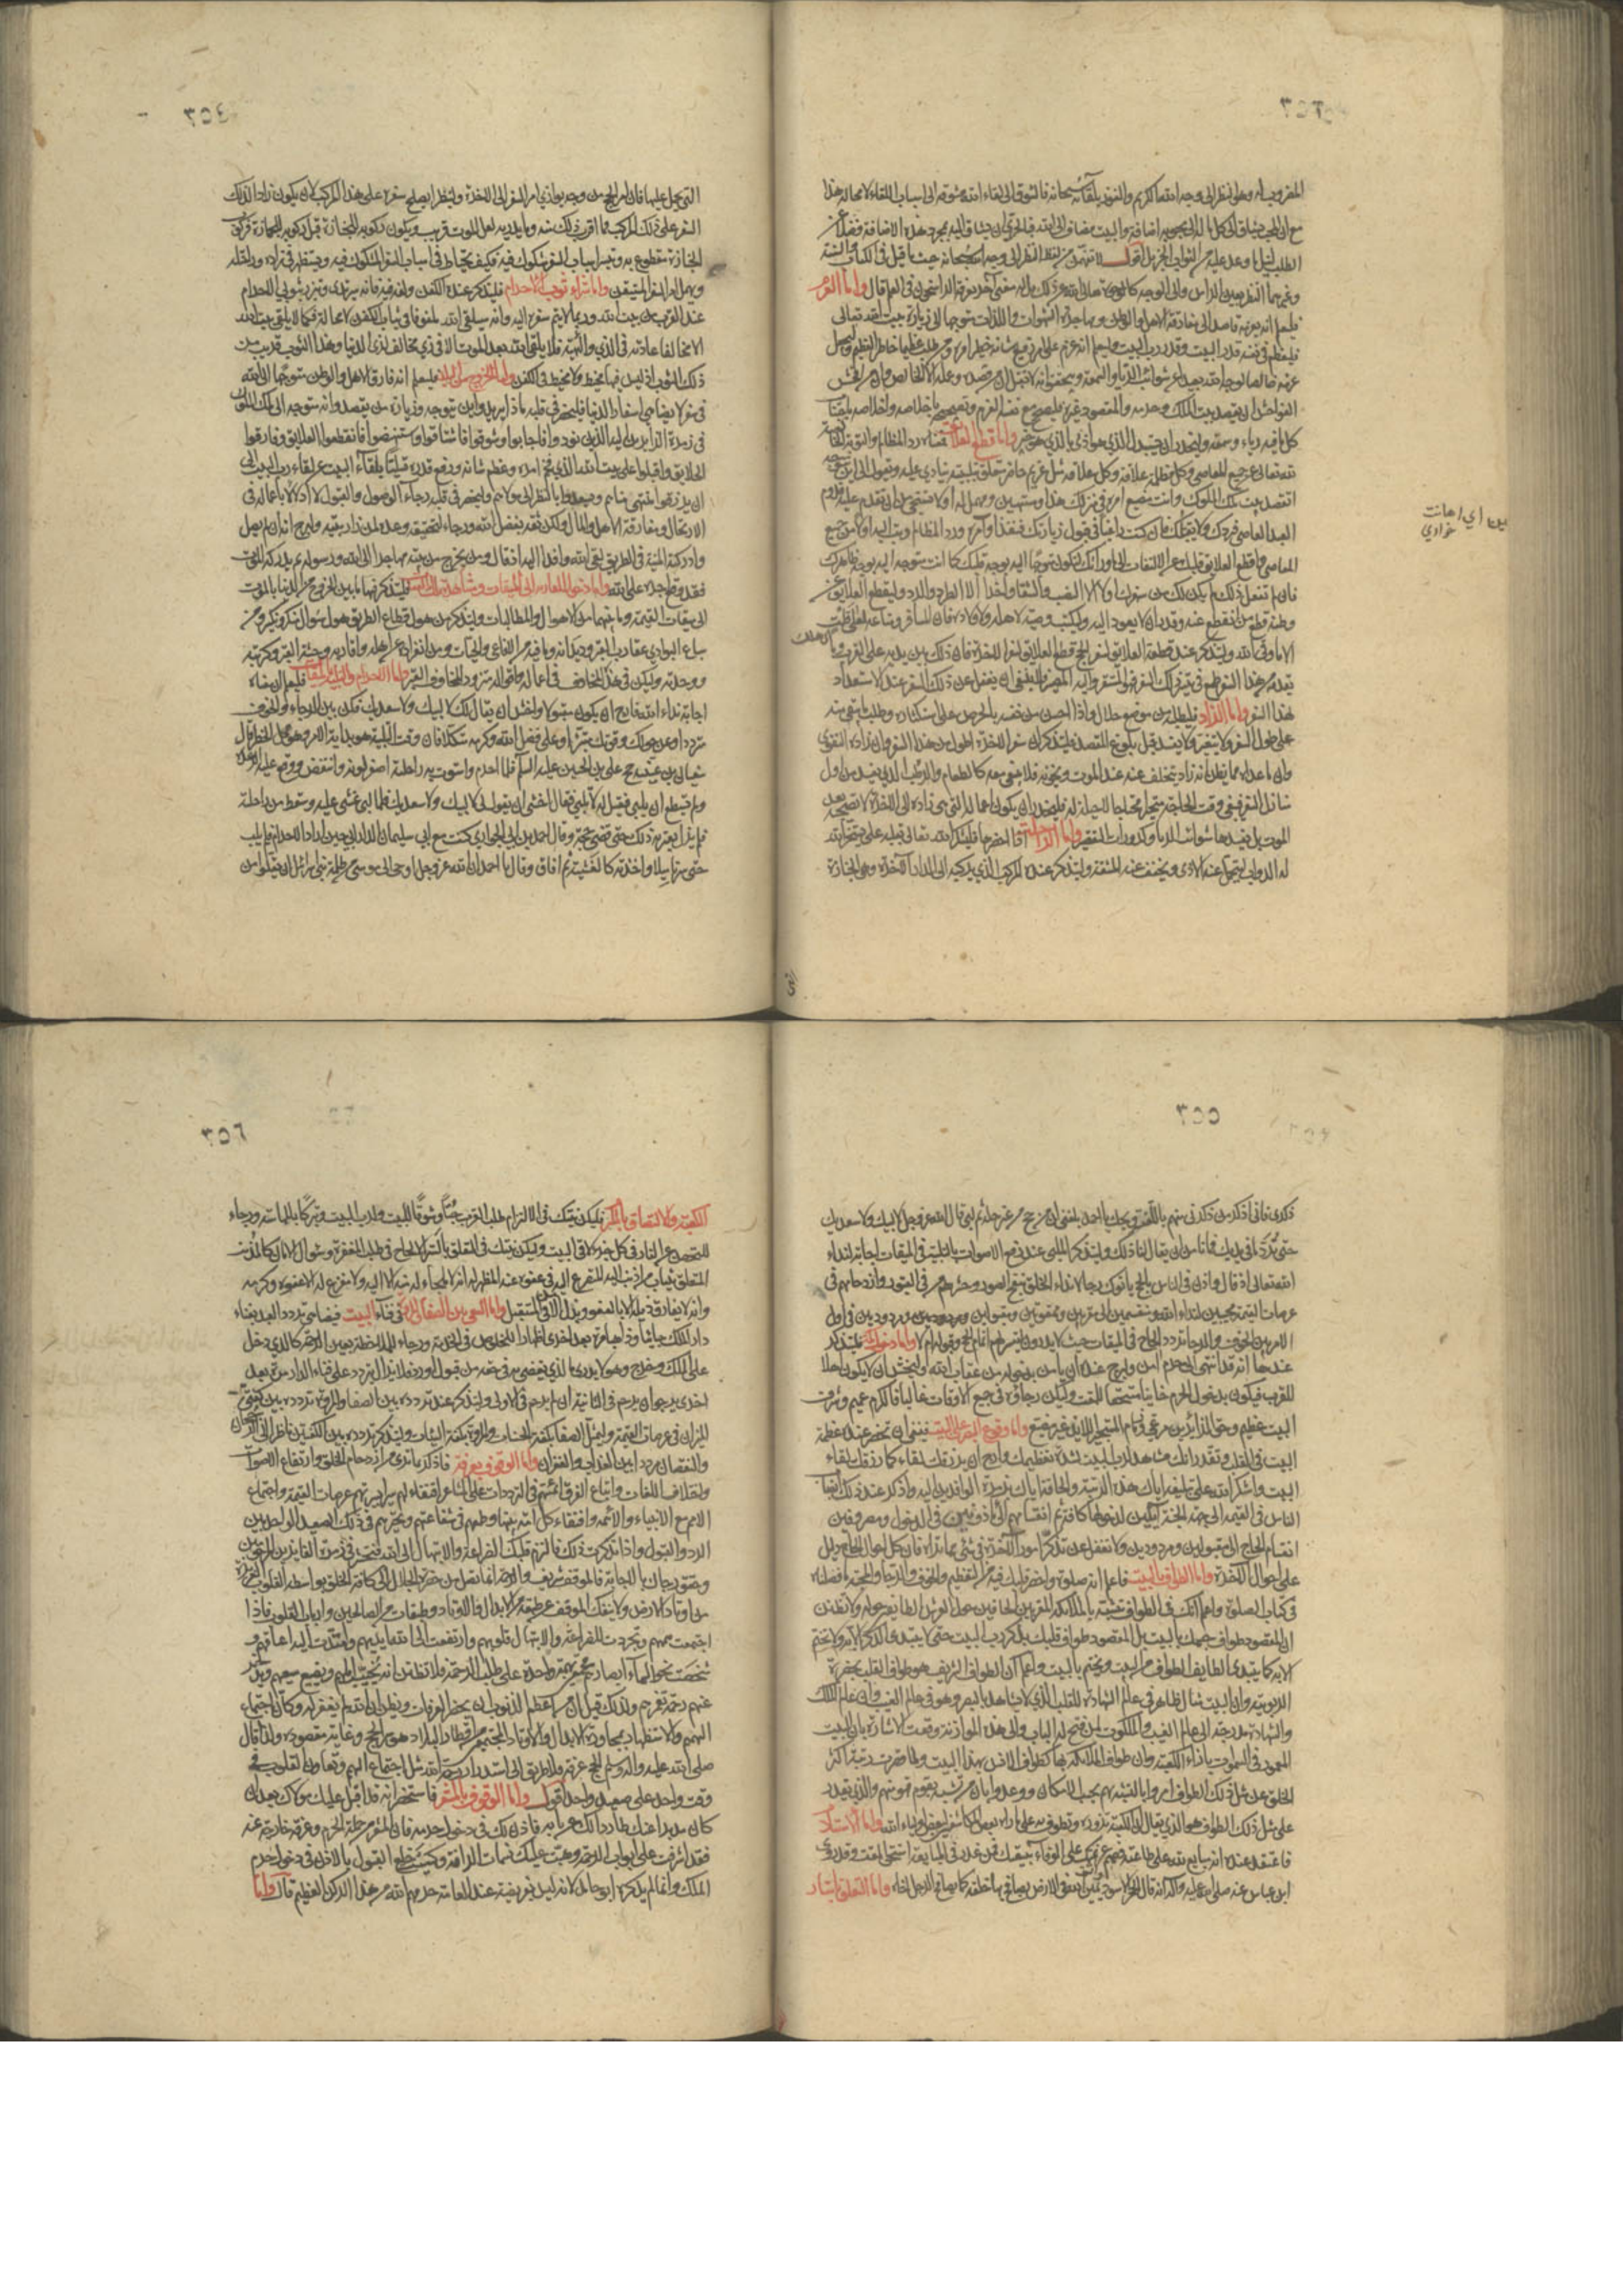 ٣٥٣
المضروب له وهو النظر إلى وجه الله الكريم والتزود بلقائه سبحانه فالشوق إلى لقاء الله مشوقه إلى أسباب اللقاء لا محالة هذا
مع أن المحب مشتاق إلى كل ما له إلى محبوبه إضافة والبيت مضاف إلى الله فبالحري أن يشتاق إليه بمجرد هذه الإضافة فضلا عن
الطلب لنيل ما وعد عليه من الثواب الجزيل أقول لا تفهمن من لفظ النظر إلى وجه الله سبحانه حيث ما قيل في الكتاب والسنة
وغيرهما النظر بعين الرأس وإلى الوجه كالوجوه تعالى الله عن ذلك بل له معنى آخر يعرفه الراسخون في العلم قال وأما العزم
فليعلم أنه بعزمه قاصد إلى مفارقة الأهل والوطن ومهاجرة الشهوات واللذات متوجها إلى زيارة بيت الله تعالى
فليعظم في نفسه قدر البيت وقدر رب البيت وليعلم أنه عزم على أمر رفيع شأنه خطير أمره ومن طلب عظيما خاطر بعظيم وليجعل
عزمه خالصا لوجه الله بعيدا عن شوائب الرياء والسمعة وليتحقق أنه لا يقبل من قصده وعمله إلا الخالص وإن من أفحش
الفواحش أن يقصد بيت الملك وحرمه والمقصود غيره فليصحح مع نفسه العزم وتصحيحه بإخلاصه وإخلاصه باجتناب
كل ما فيه رياء وسمعة وليحذر أن يستبدل الذي هو أدنى بالذي هو خير وأما قطع العلائق فمعناه رد المظالم والتوبة الخالصة
لله تعالى عن جميع المعاصي وكل مظلمة علاقة وكل علاقة مثل غريم حاضر متعلق بتلبيبه ينادي عليه ويقول إلى أين تتوجه
أتقصد بيت ملك الملوك وأنت مضيع أمره في منزلك هذا ومستهين به ومهمل له أو لا تستحيي من أن تقدم عليه قدوم
العبد العاصي فيردك ولا يقبلك فإن كنت راغبا في قبول زيارتك فنفذ أوامره ورد المظالم وتب إليه أولا من جميع
المعاصي واقطع علاقة قلبك عن الالتفات إلى ما وراءك لتكون متوجها إليه بوجه قلبك كما أنت متوجه إليه بوجه ظاهرك
فإن لم تفعل ذلك لم يكن لك من سفرك أولا إلا النصب والشقاء وآخرا إلا الطرد والرد وليقطع العلائق عن
وطنه قطع من انقطع عنه وقدر أن لا يعود إليه وليكتب وصيته لأهله وأولاده فإن المسافر وماله لعلى قلت
إلا ما وقى الله وليتذكر عند قطعه العلائق لسفر الحج قطع العلائق لسفر الآخرة فإن ذلك بين يديه على القرب وما
يقدمه من هذا السفر طمع في تيسر ذلك السفر فهو المستقر وإليه المصير فلا ينبغي أن يغفل عن ذلك السفر عند الاستعداد
لهذا السفر وأما الزاد فليطلبه من موضع حلال وإذا أحس من نفسه بالحرص على استكثاره وطلب ما يبقى منه
على طول السفر ولا يتغير ولا يفسد قبل بلوغ المقصد فليتذكر أن سفر الآخرة أطول من هذا السفر وأن زاده التقوى
وأن ما عداه مما يظن أنه زاده يتخلف عنه عند الموت ويخونه فلا يبقى معه كالطعام الرطب الذي يفسد في أول
منازل السفر فيبقى وقت الحاجة متحيرا محتاجا لا حيلة له فليحذر أن يكون أعماله التي هي زاده إلى الآخرة لا تصحبه بعد
الموت بل يفسدها شوائب الرياء وكدورات التقصير وأما الراحلة إذا أحضرها فليشكر الله تعالى بقلبه على تسخير الله
له الدواب ليتحمل عنه الأذى ويخفف عنه المشقة وليتذكر عنده المركب الذي يركبه إلى الدار الآخرة وهي الجنازة
أي إهانت
خواري
أي هلاك
٣٥٤
التي يحمل عليها فإن أمر الحج من وجه يوازي أمر السفر إلى الآخرة ولينظر أيصلح سفره على هذا المركب لأن يكون زادا لذلك
السفر على ذلك المركب فما أقرب ذلك منه وما يدريه لعل الموت قريب ويكون ركوبه للجنازة قبل ركوبه للجمازة فركوب
الجنازة مقطوع به وتيسر أسباب السفر مشكوك فيه فكيف يحتاط في أسباب السفر المشكوك فيه ويستظهر في زاده وراحلته
ويهمل أمر السفر المتيقن وأما شراء ثوبي الإحرام فليتذكر عنده الكفن ولفه فيه فإنه سيرتدي ويتزر بثوبي الإحرام
عند القرب من بيت الله وربما لا يتم سفره إليه وأنه سيلقى الله ملفوفا في ثياب الكفن لا محالة فكما لا يلقى بيت الله
إلا مخالفا عادته في الزي والهيئة فلا يلقى الله بعد الموت إلا في زي مخالف لزي الدنيا وهذا الثوب قريب من
ذلك الثوب إذ ليس فيه مخيط ولا مخيط في الكفن وأما الخروج من البلد فليعلم أنه فارق الأهل والوطن متوجها إلى الله
في سفر لا يضاهي أسفار الدنيا فليحضر في قلبه ماذا يريد وأين يتوجه وزيارة من يقصد وأنه متوجه إلى ملك الملوك
في زمرة الزائرين إليه الذين نودوا فأجابوا وشوقوا فاشتاقوا واستنهضوا فانقطعوا العلائق وفارقوا
الخلائق وأقبلوا على بيت الله الذي فخم أمره وعظم شأنه ورفع قدره تسليا بلقاء البيت عن لقاء رب البيت إلى
أن يرزقوا منتهى مناهم ويسعدوا بالنظر إلى مولاهم وليحضر في قلبه رجاء الوصول والقبول لا إدلالا بأعماله في
الارتحال ومفارقة الأهل والمال ولكن ثقة بفضل الله ورجاء لتحقيقه وعده لمن زار بيته وليرج أنه إن لم يصل
وأدركته المنية في الطريق لقي الله وافدا إليه إذ قال ومن يخرج من بيته مهاجرا إلى الله ورسوله ثم يدركه الموت
فقد وقع أجره على الله وأما دخول البادية إلى الميقات ومشاهدة تلك العقبات فليتذكر فيها ما بين الخروج من الدنيا بالموت
إلى ميقات القيمة وما بينهما من الأهوال والمطالبات وليتذكر من هول قطاع الطريق هول سؤال منكر ونكير ومن
سباع البوادي عقارب القبر وديدانه وما فيه من الأفاعي والحيات ومن انفراده عن أهله وأقاربه وحشة القبر وكربته
ووحدته وليكن في هذه المخاوف في أعماله وأقواله متزودا لمخاوف القبر وأما الإحرام والتلبية من الميقات فليعلم أن معناه
إجابة نداء الله فارج أن يكون مقبولا واخش أن يقال لك لا لبيك ولا سعديك فكن بين الرجاء والخوف
مترددا وعن حولك وقوتك متبرئا وعلى فضل الله وكرمه متكلا فإن وقت التلبية هو بداية الأمر وهو محل الخطر قال
سفيان بن عيينة حج علي بن الحسين عليه السلام فلما أحرم واستوت به راحلته اصفر لونه وانتفض ووقع عليه الرعدة
ولم يستطع أن يلبي فقيل له ألا تلبي فقال أخشى أن يقول لي لا لبيك ولا سعديك فلما لبى غشي عليه وسقط من راحلته
فلم يزل يعتريه ذلك حتى قضى حجه وقال أحمد بن أبي الحواري كنت مع أبي سليمان الداراني حين أراد الإحرام فلم يلب
حتى سرنا ميلا وأخذته كالغشية ثم أفاق وقال يا أحمد إن الله عز وجل أوحى إلى موسى مر ظلمة بني إسرائيل أن يقلوا من
٣٥٥
ذكري فإني أذكر من ذكرني منهم باللعنة ويحك يا أحمد بلغني أن من حج من غير حله ثم لبى قال الله عز وجل لا لبيك ولا سعديك
حتى ترد ما في يديك فما نأمن أن يقال لنا ذلك وليتذكر الملبي عند رفع الأصوات بالتلبية في الميقات إجابته لنداء
الله تعالى إذ قال وأذن في الناس بالحج يأتوك رجالا نداء الخلق بنفخ الصور وحشرهم من القبور وازدحامهم في
عرصات القيمة مجيبين لنداء الله ومنقسمين إلى مقربين وممقوتين ومقبولين ومردودين ومرددين في أول
الأمر بين الخوف والرجاء تردد الحاج في الميقات حيث لا يدرون أيتيسر لهم إتمام الحج وقبوله أم لا وأما دخول مكة فليتذكر
عندها أنه قد انتهى إلى حرم آمن وليرج عنده أن يأمن بدخوله من عقاب الله وليخش أن لا يكون أهلا
للقرب فيكون بدخول الحرم خائبا مستحقا للمقت وليكن رجاؤه في جميع الأوقات غالبا فالكرم عميم وشرف
البيت عظيم وحق الزائر مرعي وذمام المستجير اللائذ غير مضيع وأما وقوع البصر على البيت فينبغي أن تحضر عنده عظمة
البيت في القلب وتقدر أنك مشاهد لرب البيت لشدة تعظيمك وارج أن يرزقك لقاءه كما رزقك لقاء
البيت واشكر الله على تبليغه إياك هذه الرتبة وإلحاقه إياك بزمرة الوافدين إليه واذكر عند ذلك انصباب
الناس في القيمة إلى جهة الجنة آملين لدخولها كافة ثم انقسامهم إلى مأذونين في الدخول ومصروفين
انقسام الحاج إلى مقبولين ومردودين ولا تغفل عن تذكر أمور الآخرة في شيء مما تراه فإن كل أحوال الحاج دليل
على أحوال الآخرة وأما الطواف بالبيت فاعلم أنه صلوة وأحضر قلبك فيه من التعظيم والخوف والرجاء والمحبة ما فصلناه
في كتاب الصلوة واعلم أنك في الطواف متشبه بالملائكة المقربين الحافين حول العرش الطائفين حوله ولا تظنن
أن المقصود طواف جسمك بالبيت بل المقصود طواف قلبك بذكر رب البيت حتى لا يبتدئ الذكر إلا به ولا يختم
إلا به كما يبتدئ الطائف الطواف من البيت ويختم بالبيت واعلم أن الطواف الشريف هو طواف القلب بحضرة
الربوبية وأن البيت مثال ظاهر في عالم الشهادة للقلب الذي لا يشاهد بالبصر وهو في عالم الغيب وأن عالم الملك
والشهادة مدرجة إلى عالم الغيب والملكوت لمن فتح له الباب وإلى هذه الموازنة وقعت الإشارة بأن البيت
المعمور في السموات بإزاء الكعبة وأن طواف الملائكة بها كطواف الإنس بهذا البيت ولما قصرت رتبة أكثر
الخلق عن مثل ذلك الطواف أمروا بالتشبه بهم بحسب الإمكان ووعدوا بأن من تشبه بقوم فهو منهم والذي يقدر
على مثل ذلك الطواف هو الذي يقال إن الكعبة تزوره وتطوف به على ما رآه بعض المكاشفين لبعض أولياء الله وأما الاستلام
فاعتقد عنده أنه مبايع لله على طاعته فصمم عزيمتك على الوفاء ببيعتك فمن غدر في المبايعة استحق المقت وقد روى
ابن عباس عنه صلى الله عليه وآله أنه قال الحجر الأسود يمين الله في الأرض يصافح بها خلقه كما يصافح الرجل أخاه وأما التعلق بأستار
٣٥٦
الكعبة والالتصاق بالملتزم فليكن نيتك في الالتزام طلب القرب حبا وشوقا للبيت ولرب البيت وتبركا بالمماسة ورجاء
للتحصن عن النار في كل جزء لاقى البيت وليكن نيتك في التعلق بالستر الإلحاح في طلب المغفرة وسؤال الأمان كالمذنب
المتعلق بثياب من أذنب إليه المتضرع إليه في عفوه عنه المظهر له أنه لا ملجأ له منه إلا إليه ولا مفزع له إلا عفوه وكرمه
وأنه لا يفارق ذيله إلا بالعفو وبذل الأمن في المستقبل وأما السعي بين الصفا والمروة في فناء البيت فيضاهي تردد العبد بفناء
دار الملك جائيا وذاهبا مرة بعد أخرى إظهارا للخلوص في الخدمة ورجاء للملاحظة بعين الرحمة كالذي دخل
على الملك وخرج وهو لا يدري ما الذي يقضي به الملك في حقه من قبول أو رد فلا يزال يتردد على فناء الدار مرة بعد
أخرى يرجو أن يرحم في الثانية إن لم يرحم في الأولى وليتذكر عند تردده بين الصفا والمروة تردده بين كفتي
الميزان في عرصات القيمة وليمثل الصفا بكفة الحسنات والمروة بكفة السيئات وليتذكر تردده بين الكفتين ناظرا إلى الرجحان
والنقصان مرددا بين العذاب والغفران وأما الوقوف بعرفة فاذكر بما ترى من ازدحام الخلق وارتفاع الأصوات
واختلاف اللغات واتباع الفرق أئمتهم في الترددات على المشاعر اقتفاء لهم وسيرا بسيرتهم عرصات القيمة واجتماع
الأمم مع الأنبياء والأئمة واقتفاء كل أمة نبيها وطمعهم في شفاعتهم وتحيرهم في ذلك الصعيد الواحد بين
الرد والقبول وإذا تذكرت ذلك فألزم قلبك الضراعة والابتهال إلى الله فتحشر في زمرة الفايزين المرحومين
وحقق رجاءك بالإجابة فالموقف شريف والرحمة إنما تصل من حضرة الجلال إلى كافة الخلق بواسطة القلوب العزيزة
من أوتاد الأرض ولا ينفك الموقف عن طبقة من الأبدال والأوتاد وطبقات من الصالحين وأرباب القلوب فإذا
اجتمعت هممهم وتجردت للضراعة والابتهال قلوبهم وارتفعت إلى الله أيديهم وامتدت إليه أعناقهم و
شخصت نحو السماء أبصارهم مجتمعين بهمة واحدة على طلب الرحمة فلا تظنن أنه يخيب أملهم ويضيع سعيهم ويدخر
عنهم رحمة تغمرهم ولذلك قيل إن من أعظم الذنوب أن يحضر العرفات ويظن أن الله لم يغفر له وكأن اجتماع
الهمم والاستظهار بمجاورة الأبدال والأوتاد المجتمعين من أقطار البلاد هو سر الحج وغاية مقصوده ولذا قال
صلى الله عليه وآله وسلم الحج عرفة فلا طريق إلى استدرار رحمة الله مثل اجتماع الهمم وتعاون القلوب في
وقت واحد على صعيد واحد أقول وأما الوقوف بالمشعر فاستحضر أنه قد أقبل عليك مولاك بعد أن
كان مدبرا عنك طاردا لك عن بابه فأذن لك في دخول حرمه فإن المشعر من جملة الحرم وعرفة خارجة عنه
فقد أشرفت على أبواب الرحمة وهبت عليك نسمات الرأفة وكسيت خلع القبول بالإذن في دخول حرم
الملك وإنما لم يذكره أبو حامد لأنه ليس بفريضة عند العامة حرمهم الله من هذا الركن العظيم قال وأما